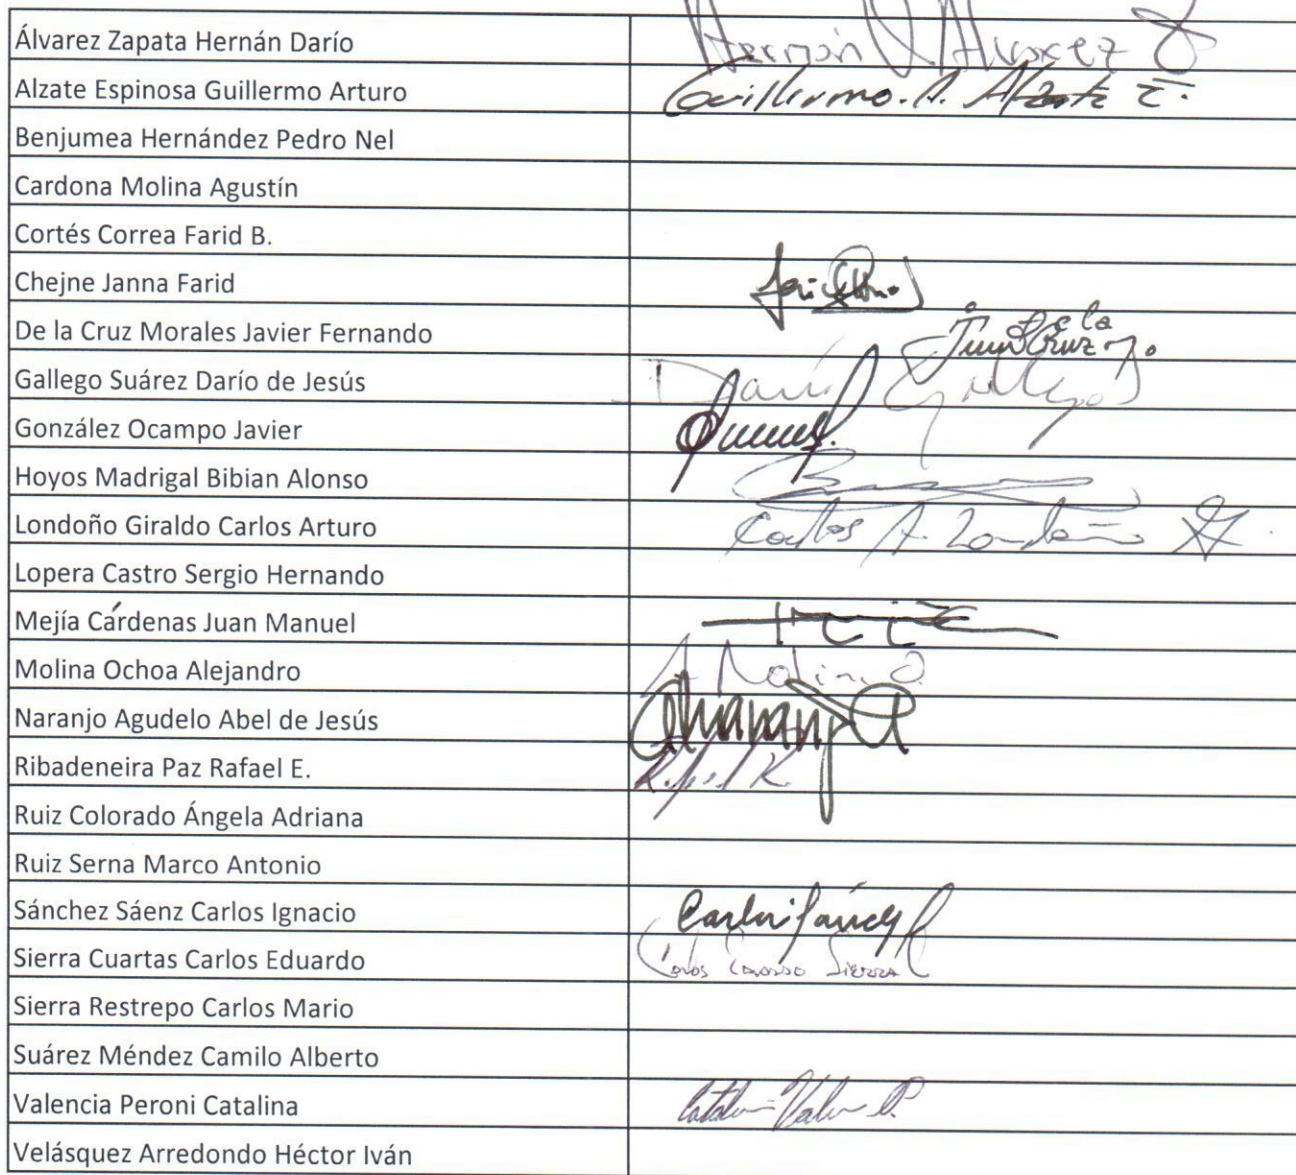 Álvarez Zapata Hernán Darío Hernán D Álvarez Z
Alzate Espinosa Guillermo Arturo Guillermo. A. Alzate E.
Benjumea Hernández Pedro Nel
Cardona Molina Agustín
Cortés Correa Farid B.
Chejne Janna Farid
De la Cruz Morales Javier Fernando de la Cruz
Gallego Suárez Darío de Jesús Darío Gallego
González Ocampo Javier
Hoyos Madrigal Bibian Alonso
Londoño Giraldo Carlos Arturo Carlos A. Londoño G.
Lopera Castro Sergio Hernando
Mejía Cárdenas Juan Manuel
Molina Ochoa Alejandro A Molina O.
Naranjo Agudelo Abel de Jesús
Ribadeneira Paz Rafael E.
Ruiz Colorado Ángela Adriana
Ruiz Serna Marco Antonio
Sánchez Sáenz Carlos Ignacio
Sierra Cuartas Carlos Eduardo Carlos Eduardo Sierra C
Sierra Restrepo Carlos Mario
Suárez Méndez Camilo Alberto
Valencia Peroni Catalina
Velásquez Arredondo Héctor Iván